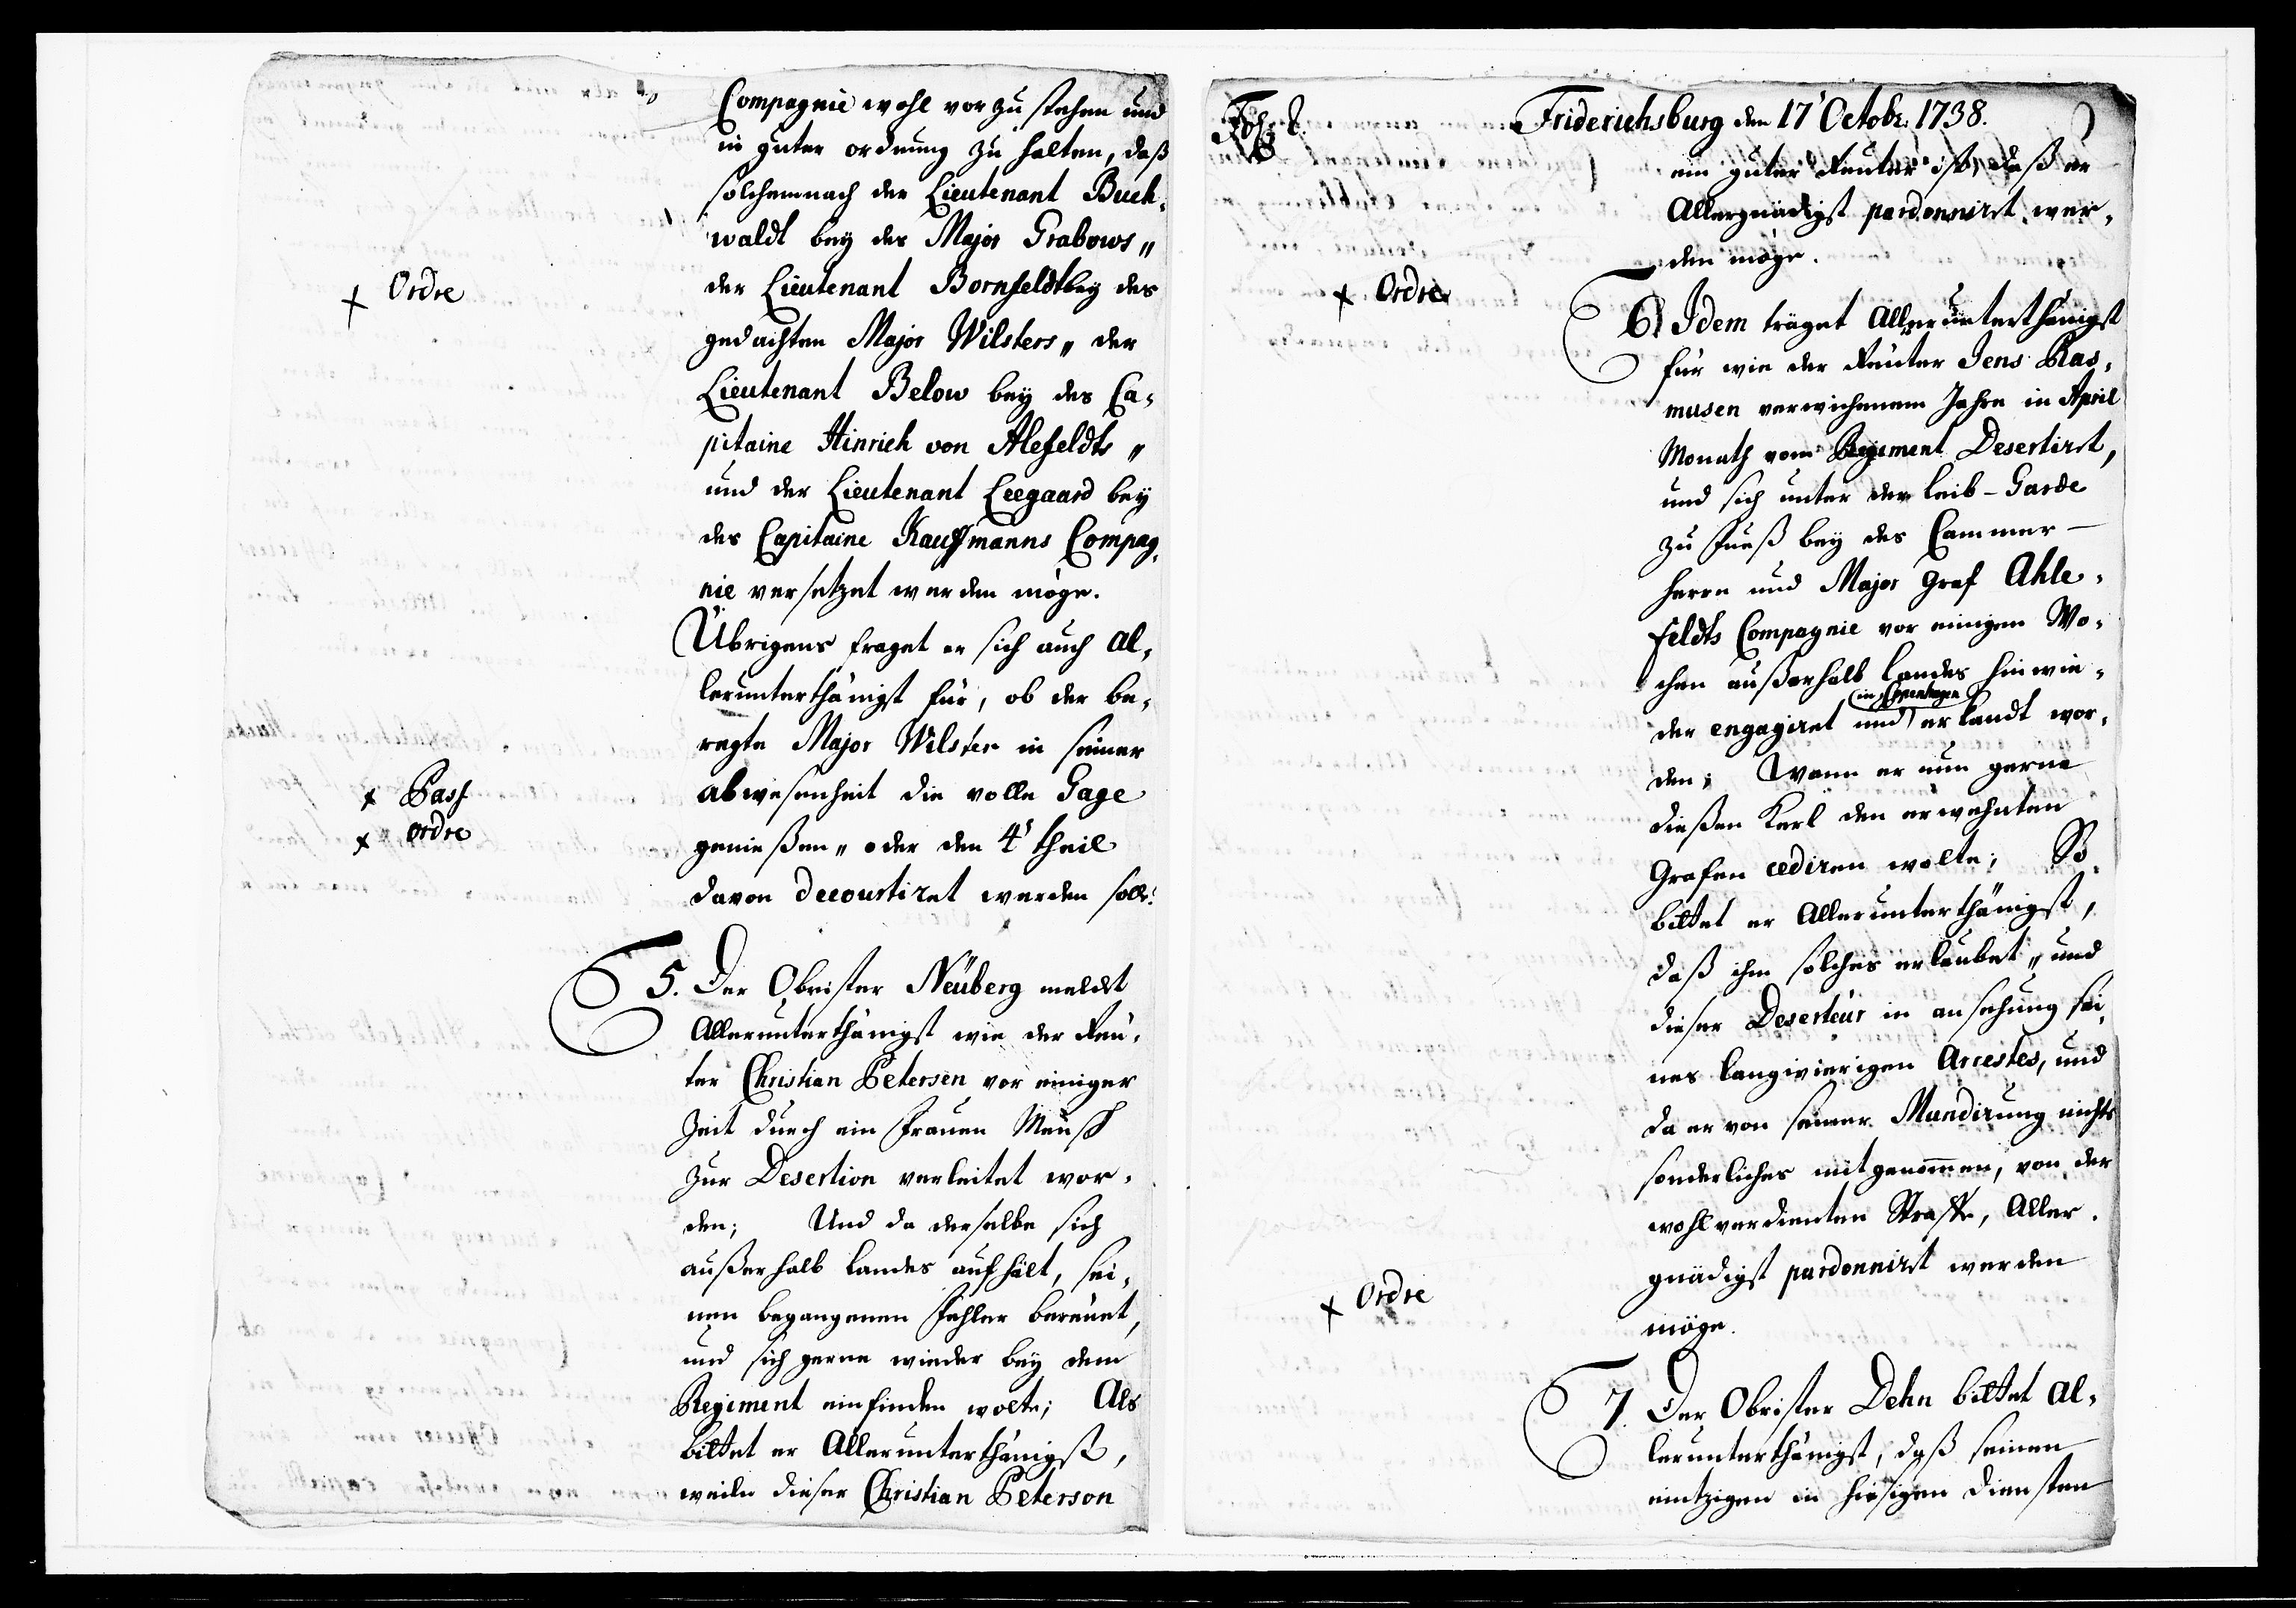 Compagnie wohl vorzustehen und
in guter ordnung zu halten, daß
solchemnach der Lieutenant Buch-
waldt bey des Major Grabows„
der Lieutenant Bornfeldt bey des
gedachten Major Wilsters„ der
Lieutenant Below bey des Ca-
pitaine Hinrich von Alefeldts„
und der Lieutenant Leegaard bey
des Capitaine Kauffmanns Compag-
nie versetzet werden möge.
Übrigens fraget er sich auch al-
lerunterthänigst für, ob der be-
regte Major Wilster in seiner
abwesenheit die volle Gage
genießen„ oder den 4t theil
davon decourtiret werden soll?
5. Der Obrister Neüberg meldet
Allerunterthänigst wie der Reu-
ter Christian Petersen vor einiger
Zeit durch ein Frauen Mensch
zur Desertion verleitet wor-
den; Und da derselbe sich
außerhalb Landes aufhält, sei-
nen begangenen Fehler bereuet,
und sich gerne wieder bey dem
Regiment einfinden wolte; Als
bittet er Allerunterthänigst,
weiln dieser Christian Peterson
x Ordre
x Pass
x ordre
Friderichsburg den 17t Octobr. 1738.
ein guter Reuter ist, daß er
Allergnädigst pardonniret wer-
den möge.
x Ordre
6. Idem träget Allerunterthänigst
für wie der Reuter Jens Ras-
musen verwichenem Jahre in April
Monath vom Regiment Desertiret,
und sich unter der Leib-Garde
zu Fueß bey des Cammer-
herrn und Major Graf Ahle-
feldts Compagnie vor einigen Wo-
chen außerhalb Landes hinwie-
der engagiret und (in Copenhagen) erkandt wor-
den; Wann er nun gerne
dießen Kerl den erwehnten
Grafen cediren wolte; So
bittet er Allerunterthänigst,
daß ihm solches erlaubet„ und
dieser Deserteur in ansehung sei-
nes langwierigen Arrestes, und
da er von seiner Mundirung nichts
sonderliches mitgenommen, von der
wohlverdienten Straffe, Aller-
gnädigst pardonniret werden
möge.
x Ordre
7. Der Obrister Dehn bittet al-
lerunterthänigst, daß seinen
eintzigen in hiesigen Diensten